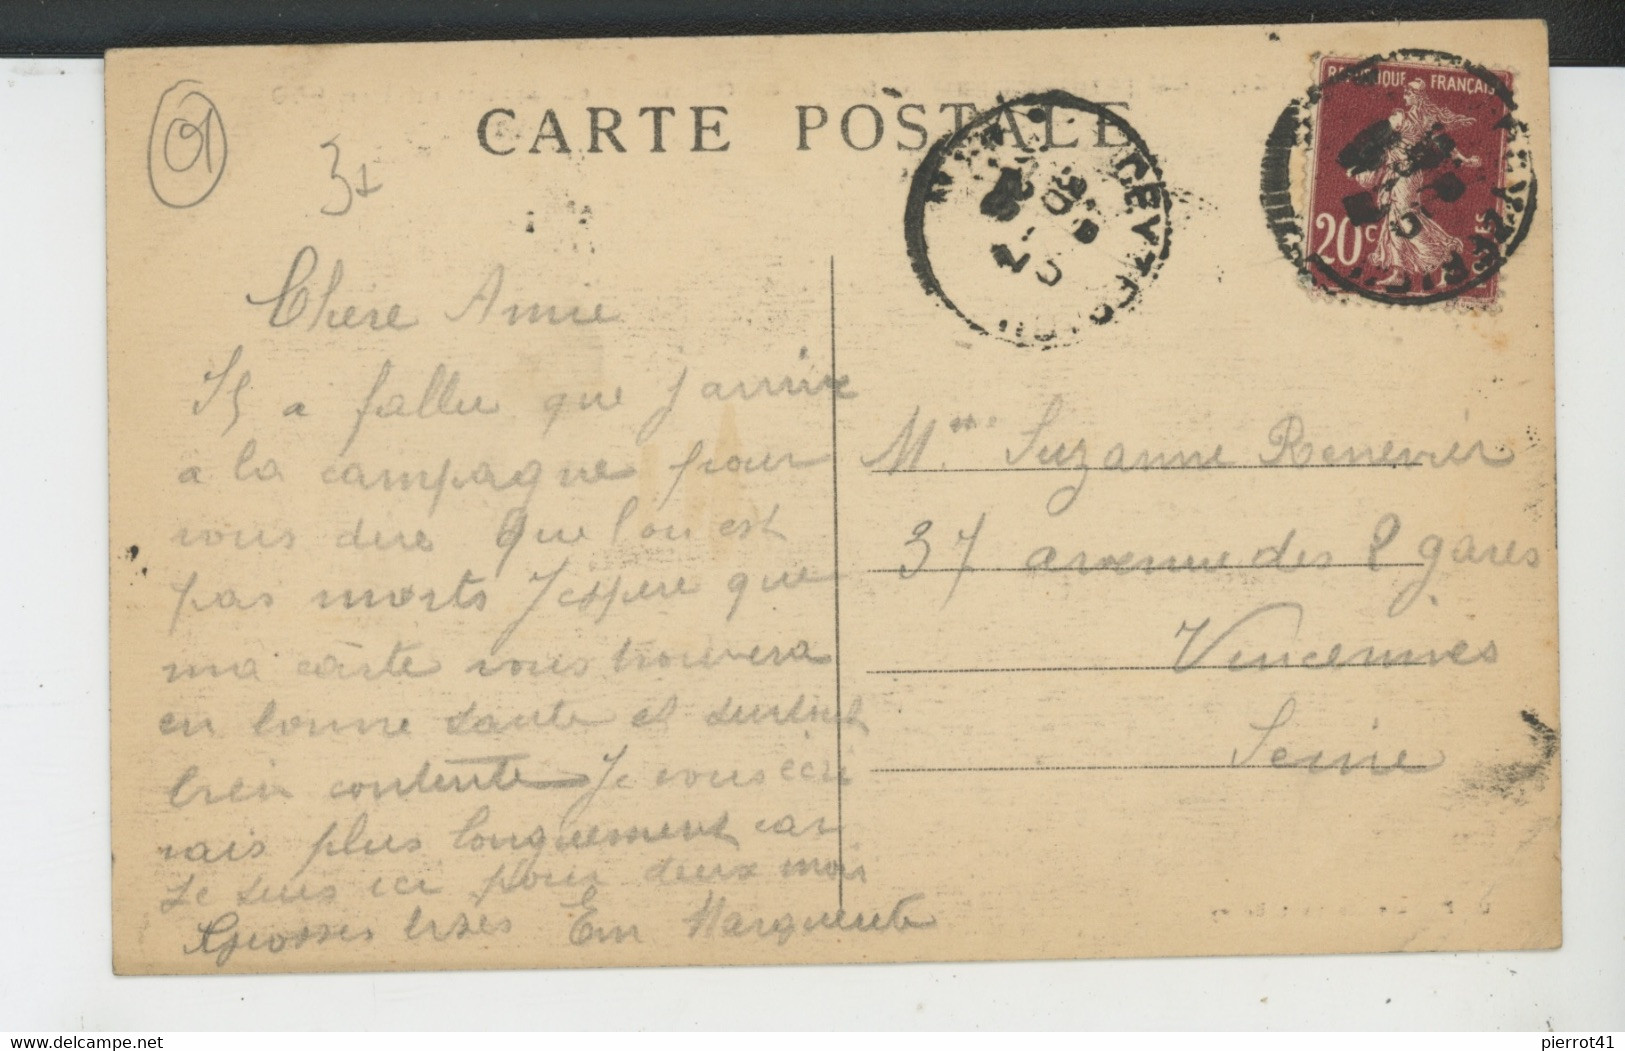 01
3
CARTE POSTALE
REPUBLIQUE FRANÇAISE
20c
CEYZERIAT
Chère Amie
Il a fallu que j arrive
a la campagne pour
vous dire que l'on est
pas morts J espere que
ma carte vous trouvera
en bonne sante et surtout
bien contente Je vous écri
rais plus longuement car
Je suis ici pour deux mois
Grosses bises Em Marguerite
Mlle Suzanne Renevier
37 avenue des 2 gares
Vincennes
Seine
pierrot41